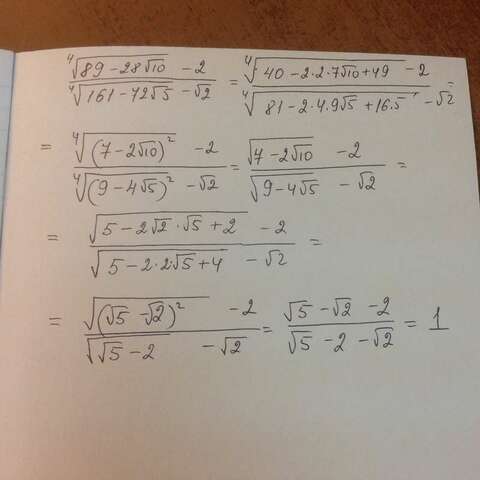 (⁴√(89 − 28√10) − 2) / (⁴√(161 − 72√5) − √2) = (⁴√(40 − 2·2·7√10 + 49) − 2) / (⁴√(81 − 2·4·9√5 + 16·5) − √2) =
= (⁴√((7 − 2√10)²) − 2) / (⁴√((9 − 4√5)²) − √2) = (√(7 − 2√10) − 2) / (√(9 − 4√5) − √2) =
= (√(5 − 2√2·√5 + 2) − 2) / (√(5 − 2·2√5 + 4) − √2) =
= (√((√5 − √2)²) − 2) / (√(√5 − 2) − √2) = (√5 − √2 − 2) / (√5 − 2 − √2) = 1